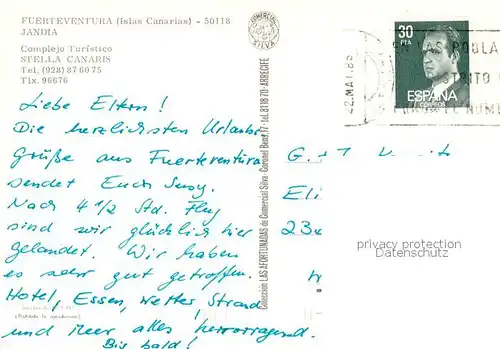 FUERTEVENTURA (Islas Canarias) - 50118
JANDIA
Complejo Turístico
STELLA CANARIS
Tel. (928) 87 60 75
Tlx. 96676
COMERCIAL SILVA
30
PTA
ESPAÑA
CORREOS
Liebe Eltern!
Die herzlichsten Urlaubs
grüße aus Fuerteventura
sendet Euch Susy.
Nach 4 1/2 Std. Flug
sind wir glücklich hier
gelandet. Wir haben
es sehr gut getroffen.
Hotel, Essen, Wetter, Strand
und Meer alles hervorragend.
Bis bald!
(Prohibida la reproducción)
Colección LAS AFORTUNADAS de Comercial Silva - Coronel Bens, 17 - tel. 81 18 70 - ARRECIFE
Eli
privacy protection
Datenschutz